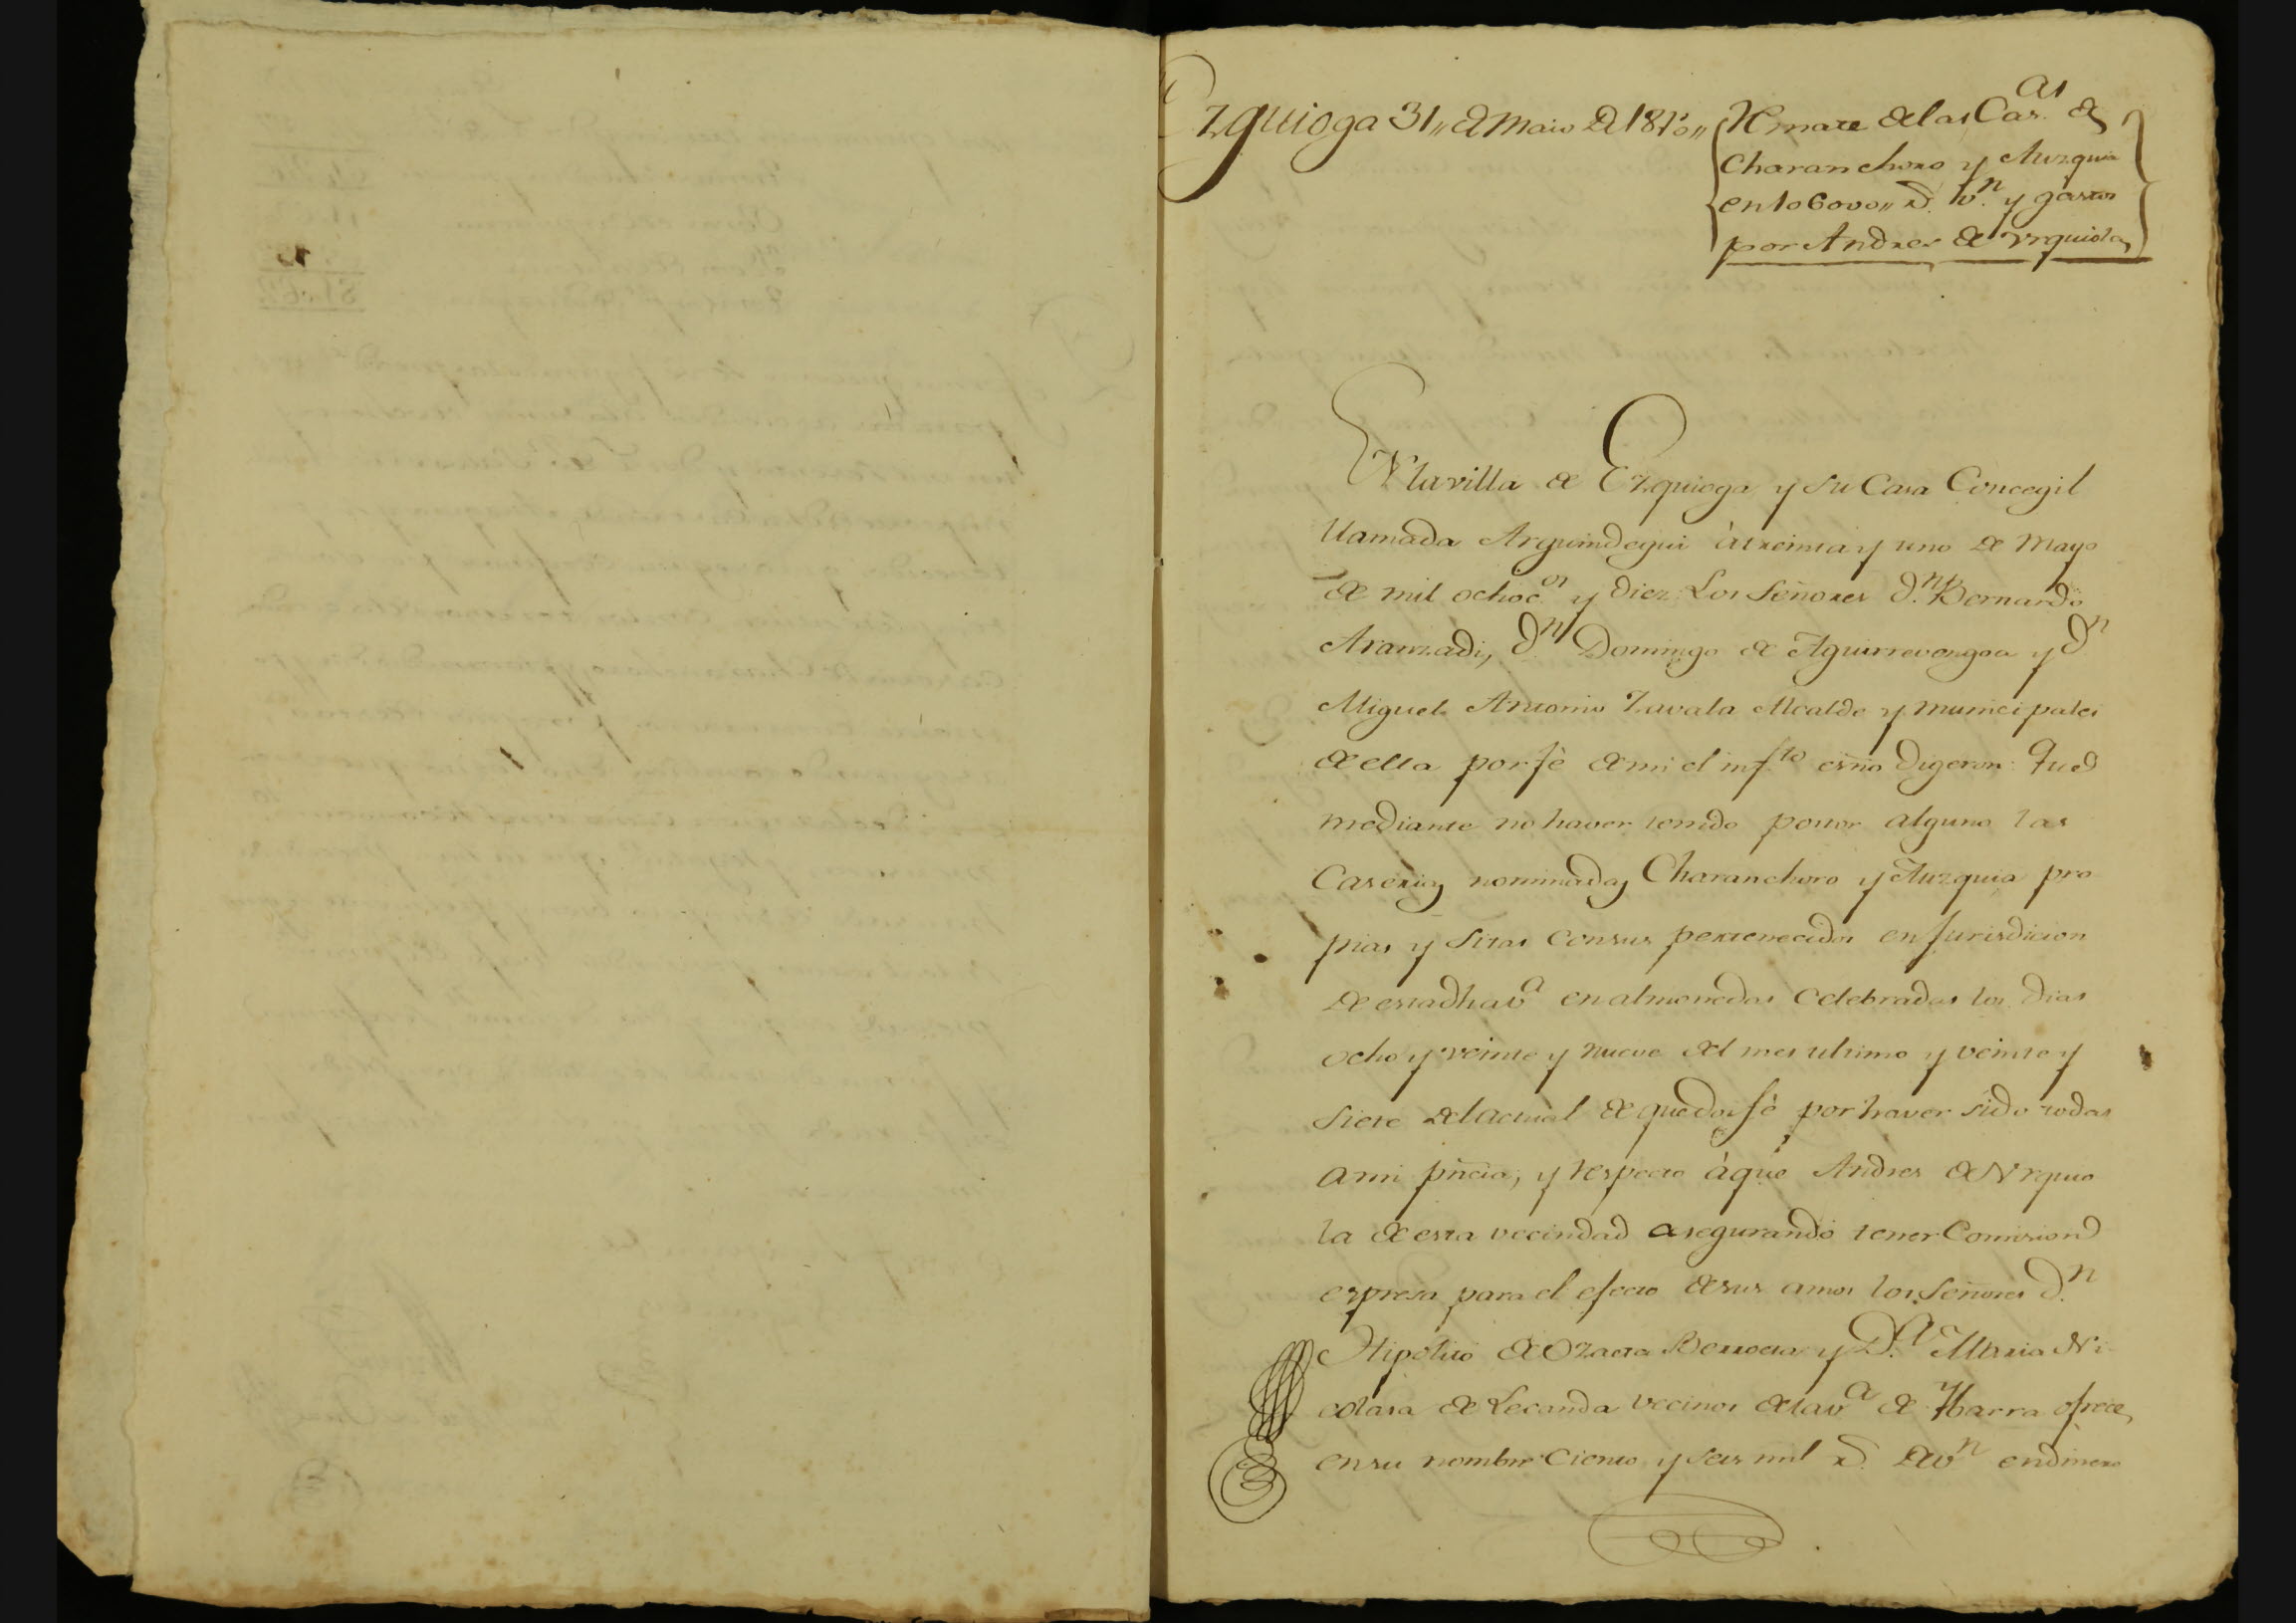 Ezquioga 31,, de Maio de 1810,,
Remate de las Cas.as de
Charanchoro y Auzquia
en 106000,, r.s v.n y gastos
por Andres de Vrquiola
EN la villa de Ezquioga y su Casa Concegil
llamada Arguindegui à treinta y uno de Mayo
de mil ochoc.os y diez Los Señores d.n Bernardo
Aranzadi, d.n Domingo de Aguirrevengoa y d.n
Miguel Antonio Zavala Alcalde y municipales
de ella por fè de mi el inf.to esño digeron: Que
mediante no haver tenido postor alguno las
Caserias nominadas Charanchoro y Auzquia pro
pias y sitas con sus pertenecidos en jurisdicion
de esta dha v.a en almonedas celebradas los dias
ocho y veinte y nueve del mes ultimo y veinte y
siete del actual de que doi fè por haver sido todas
a mi pñcia, y respecto à que Andres de Vrquio
la de esta vecindad asegurando tener Comision
espresa para el efecto de sus amos los Señores D.n
Hipolito de Ozaeta Berroeta y D.a Maria Ni
colasa de Lecanda vecinos de la v.a de Ybarra ofrece
en su nombre Ciento y seis mil r.s de v.n en dinero